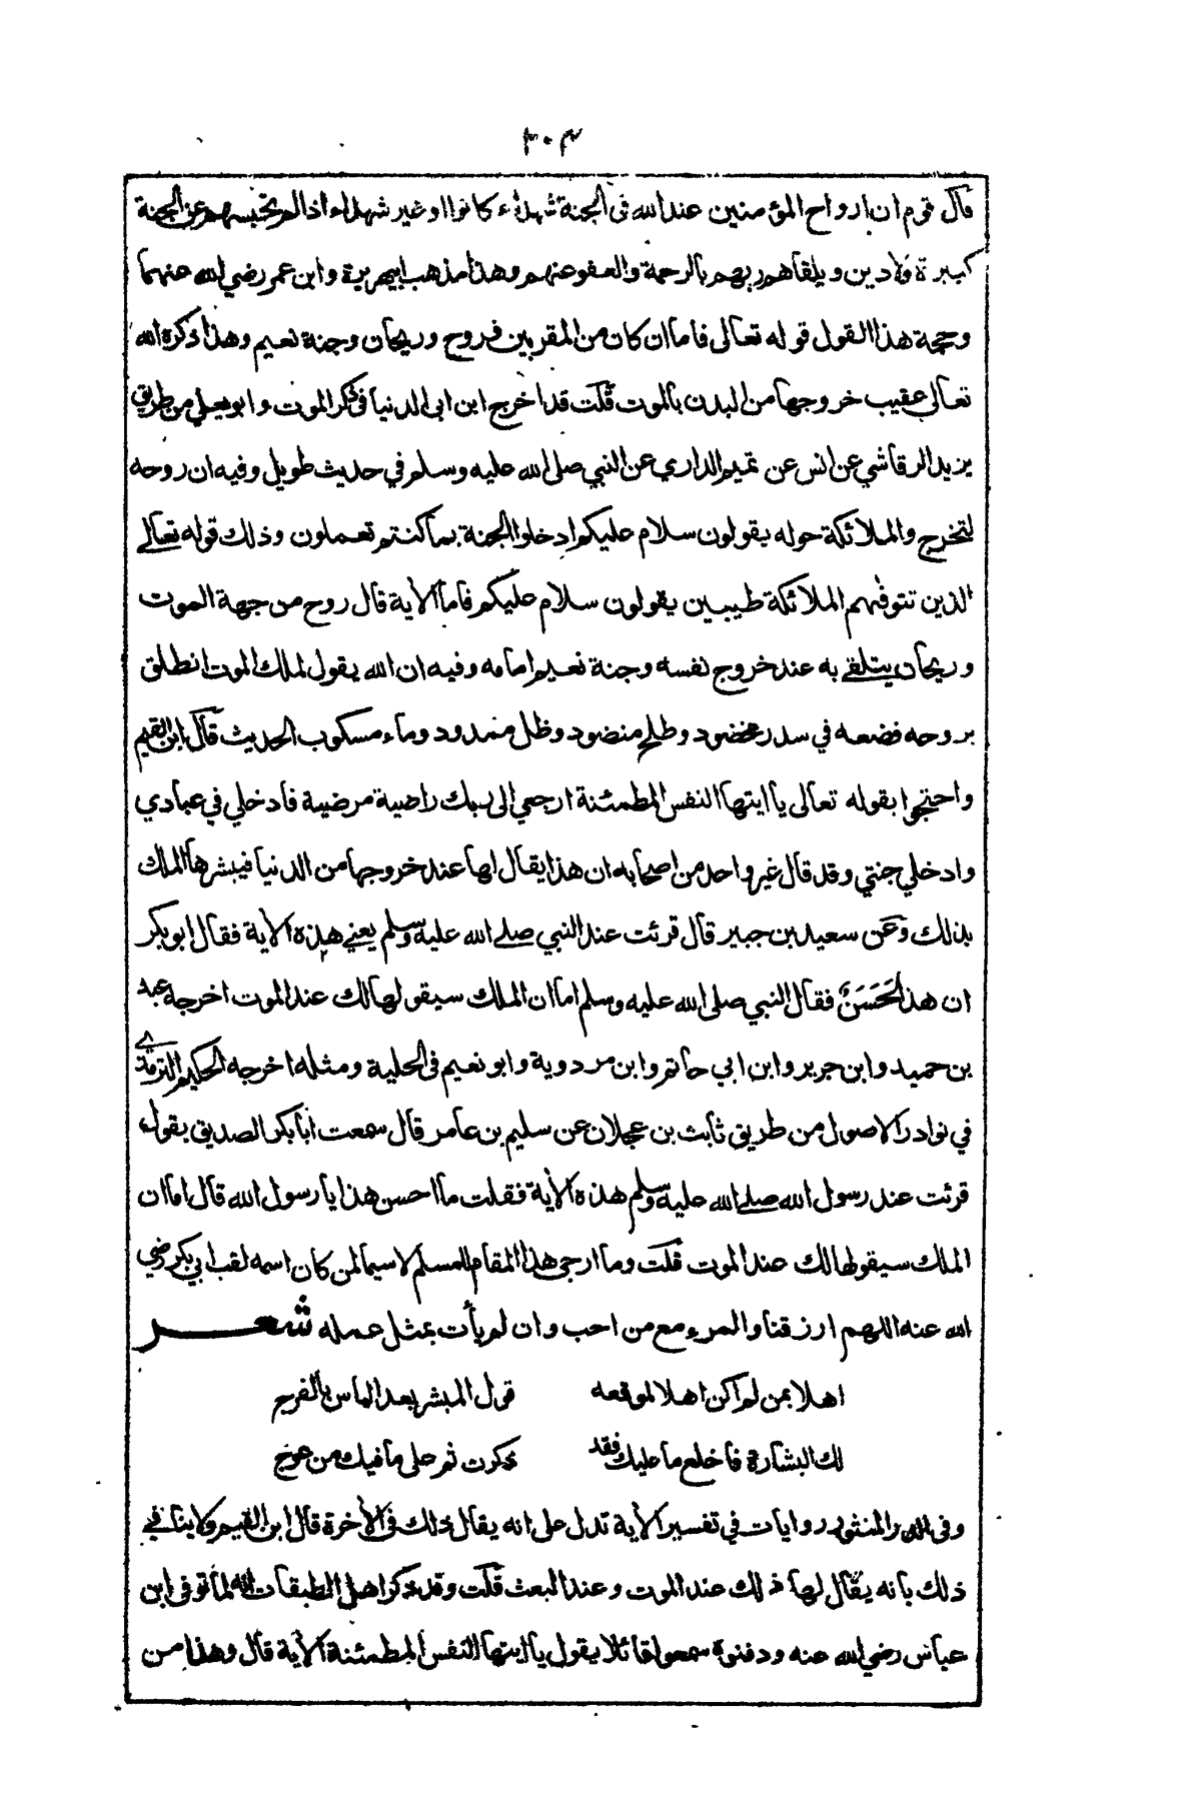 ٣٠٣
قال قوم ان ارواح المؤمنين عند الله فى الجنة شهداء كانوا او غير شهداء اذا لم تحبسهم عن الجنة
كبيرة ولا دين ويلقاهم ربهم بالرحمة والعفو عنهم وهذا مذهب ابيهريرة وابن عمر رضي الله عنهما
وحجة هذا القول قوله تعالى فاما ان كان من المقربين فروح وريحان وجنة نعيم وهذا ذكره الله
تعالى عقيب خروجها من البدن بالموت قلت قد اخرج ابن ابى الدنيا فى ذكر الموت وابو يعلى من طريق
يزيد الرقاشي عن انس عن تميم الداري عن النبي صلى الله عليه وسلم في حديث طويل وفيه ان روحه
لتخرج والملائكة حوله يقولون سلام عليكم ادخلوا الجنة بما كنتم تعملون وذلك قوله تعالى
الذين تتوفهم الملائكة طيبين يقولون سلام عليكم فاما الأية قال روح من جهة الموت
وريحان يتلقى به عند خروج نفسه وجنة نعيم امامه وفيه ان الله يقول لملك الموت انطلق
بروحه فضعه في سدر مخضود وطلح منضود وظل ممدود وماء مسكوب الحديث قال ابن القيم
واحتجوا بقوله تعالى يا ايتها النفس المطمئنة ارجعي الى ربك راضية مرضية فادخلي في عبادي
وادخلي جنتي وقد قال غير واحد من اصحابه ان هذا يقال لها عند خروجها من الدنيا فيبشرها الملك
بذلك وعن سعيد بن جبير قال قرئت عند النبي صلى الله عليه وسلم يعني هذه الأية فقال ابو بكر
ان هذا لَحَسَنٌ فقال النبي صلى الله عليه وسلم اما ان الملك سيقولها لك عند الموت اخرجه عبد
بن حميد وابن جرير وابن ابي حاتم وابن مردوية وابو نعيم فى الحلية ومثله اخرجه الحكيم الترمذي
في نوادر الاصول من طريق ثابت بن عجلان عن سليم بن عامر قال سمعت ابا بكر الصديق يقول
قرئت عند رسول الله صلى الله عليه وسلم هذه الأية فقلت ما احسن هذا يا رسول الله قال اما ان
الملك سيقولها لك عند الموت قلت وما ارجى هذا المقام للمسلم لا سيما لمن كان اسمه لقب ابي بكر رضي
الله عنه اللهم ارزقنا والمرء مع من احب وان لم يأت بمثل عمله شعر
اهلا بمن لم اكن اهلا لموقعه قول المبشر بعد الياس بالفرج
لك البشارة فاخلع ما عليك فقد ذكرت ثم على ما فيك من عوج
وفى الدر المنثور روايات في تفسير الأية تدل على انه يقال ذلك فى الأخرة قال ابن القيم ولا ينافي
ذلك بانه يقال لها ذلك عند الموت وعند البعث قلت وقد ذكر اهل الطبقات انه لما توفى ابن
عباس رضي الله عنه ودفنوه سمعوا قائلا يقول يا ايتها النفس المطمئنة الأية قال وهذا من